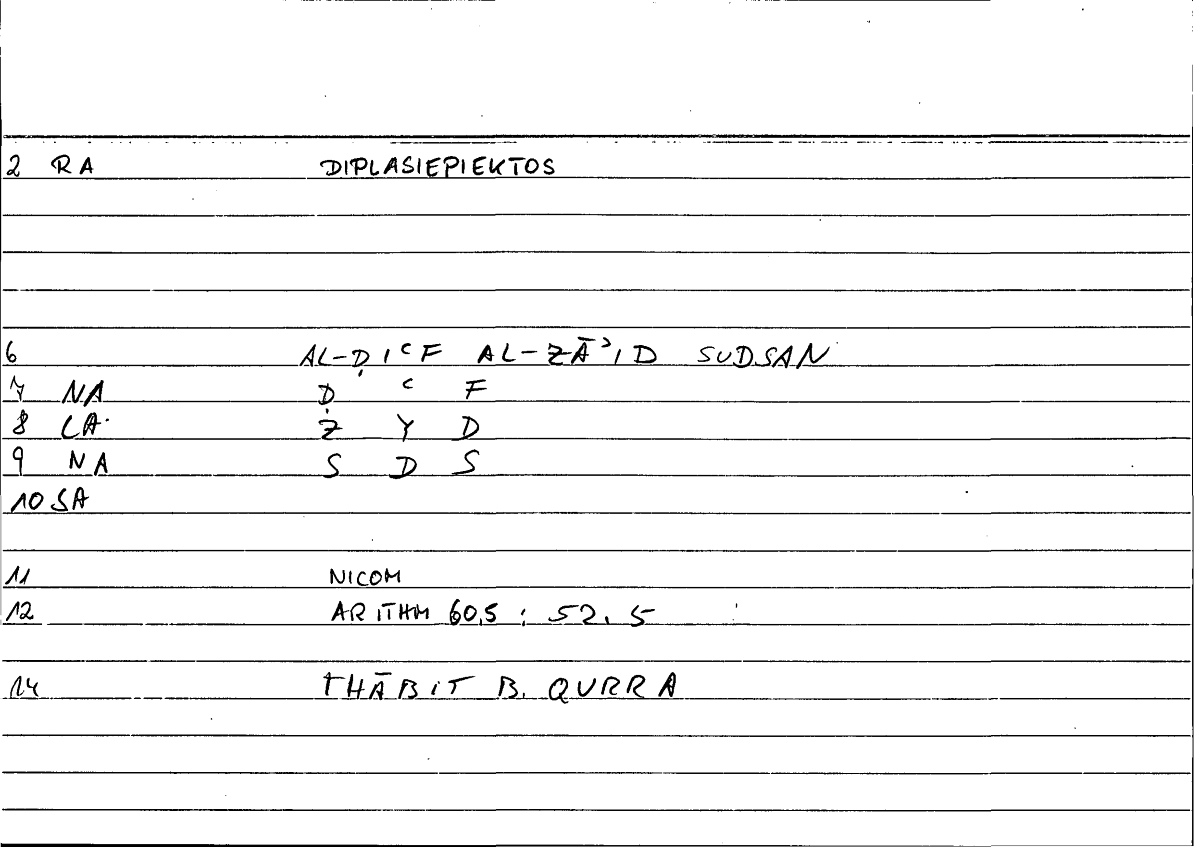 2 RA DIPLASIEPIEKTOS
6 AL-ḌIʿF AL-ZĀʾID SUDSAN
7 NA Ḍ ʿ F
8 CA Z Y D
9 NA S D S
10 SA
11 NICOM
12 ARITHM 60,5 ; 52.5
14 THĀBIT B. QURRA